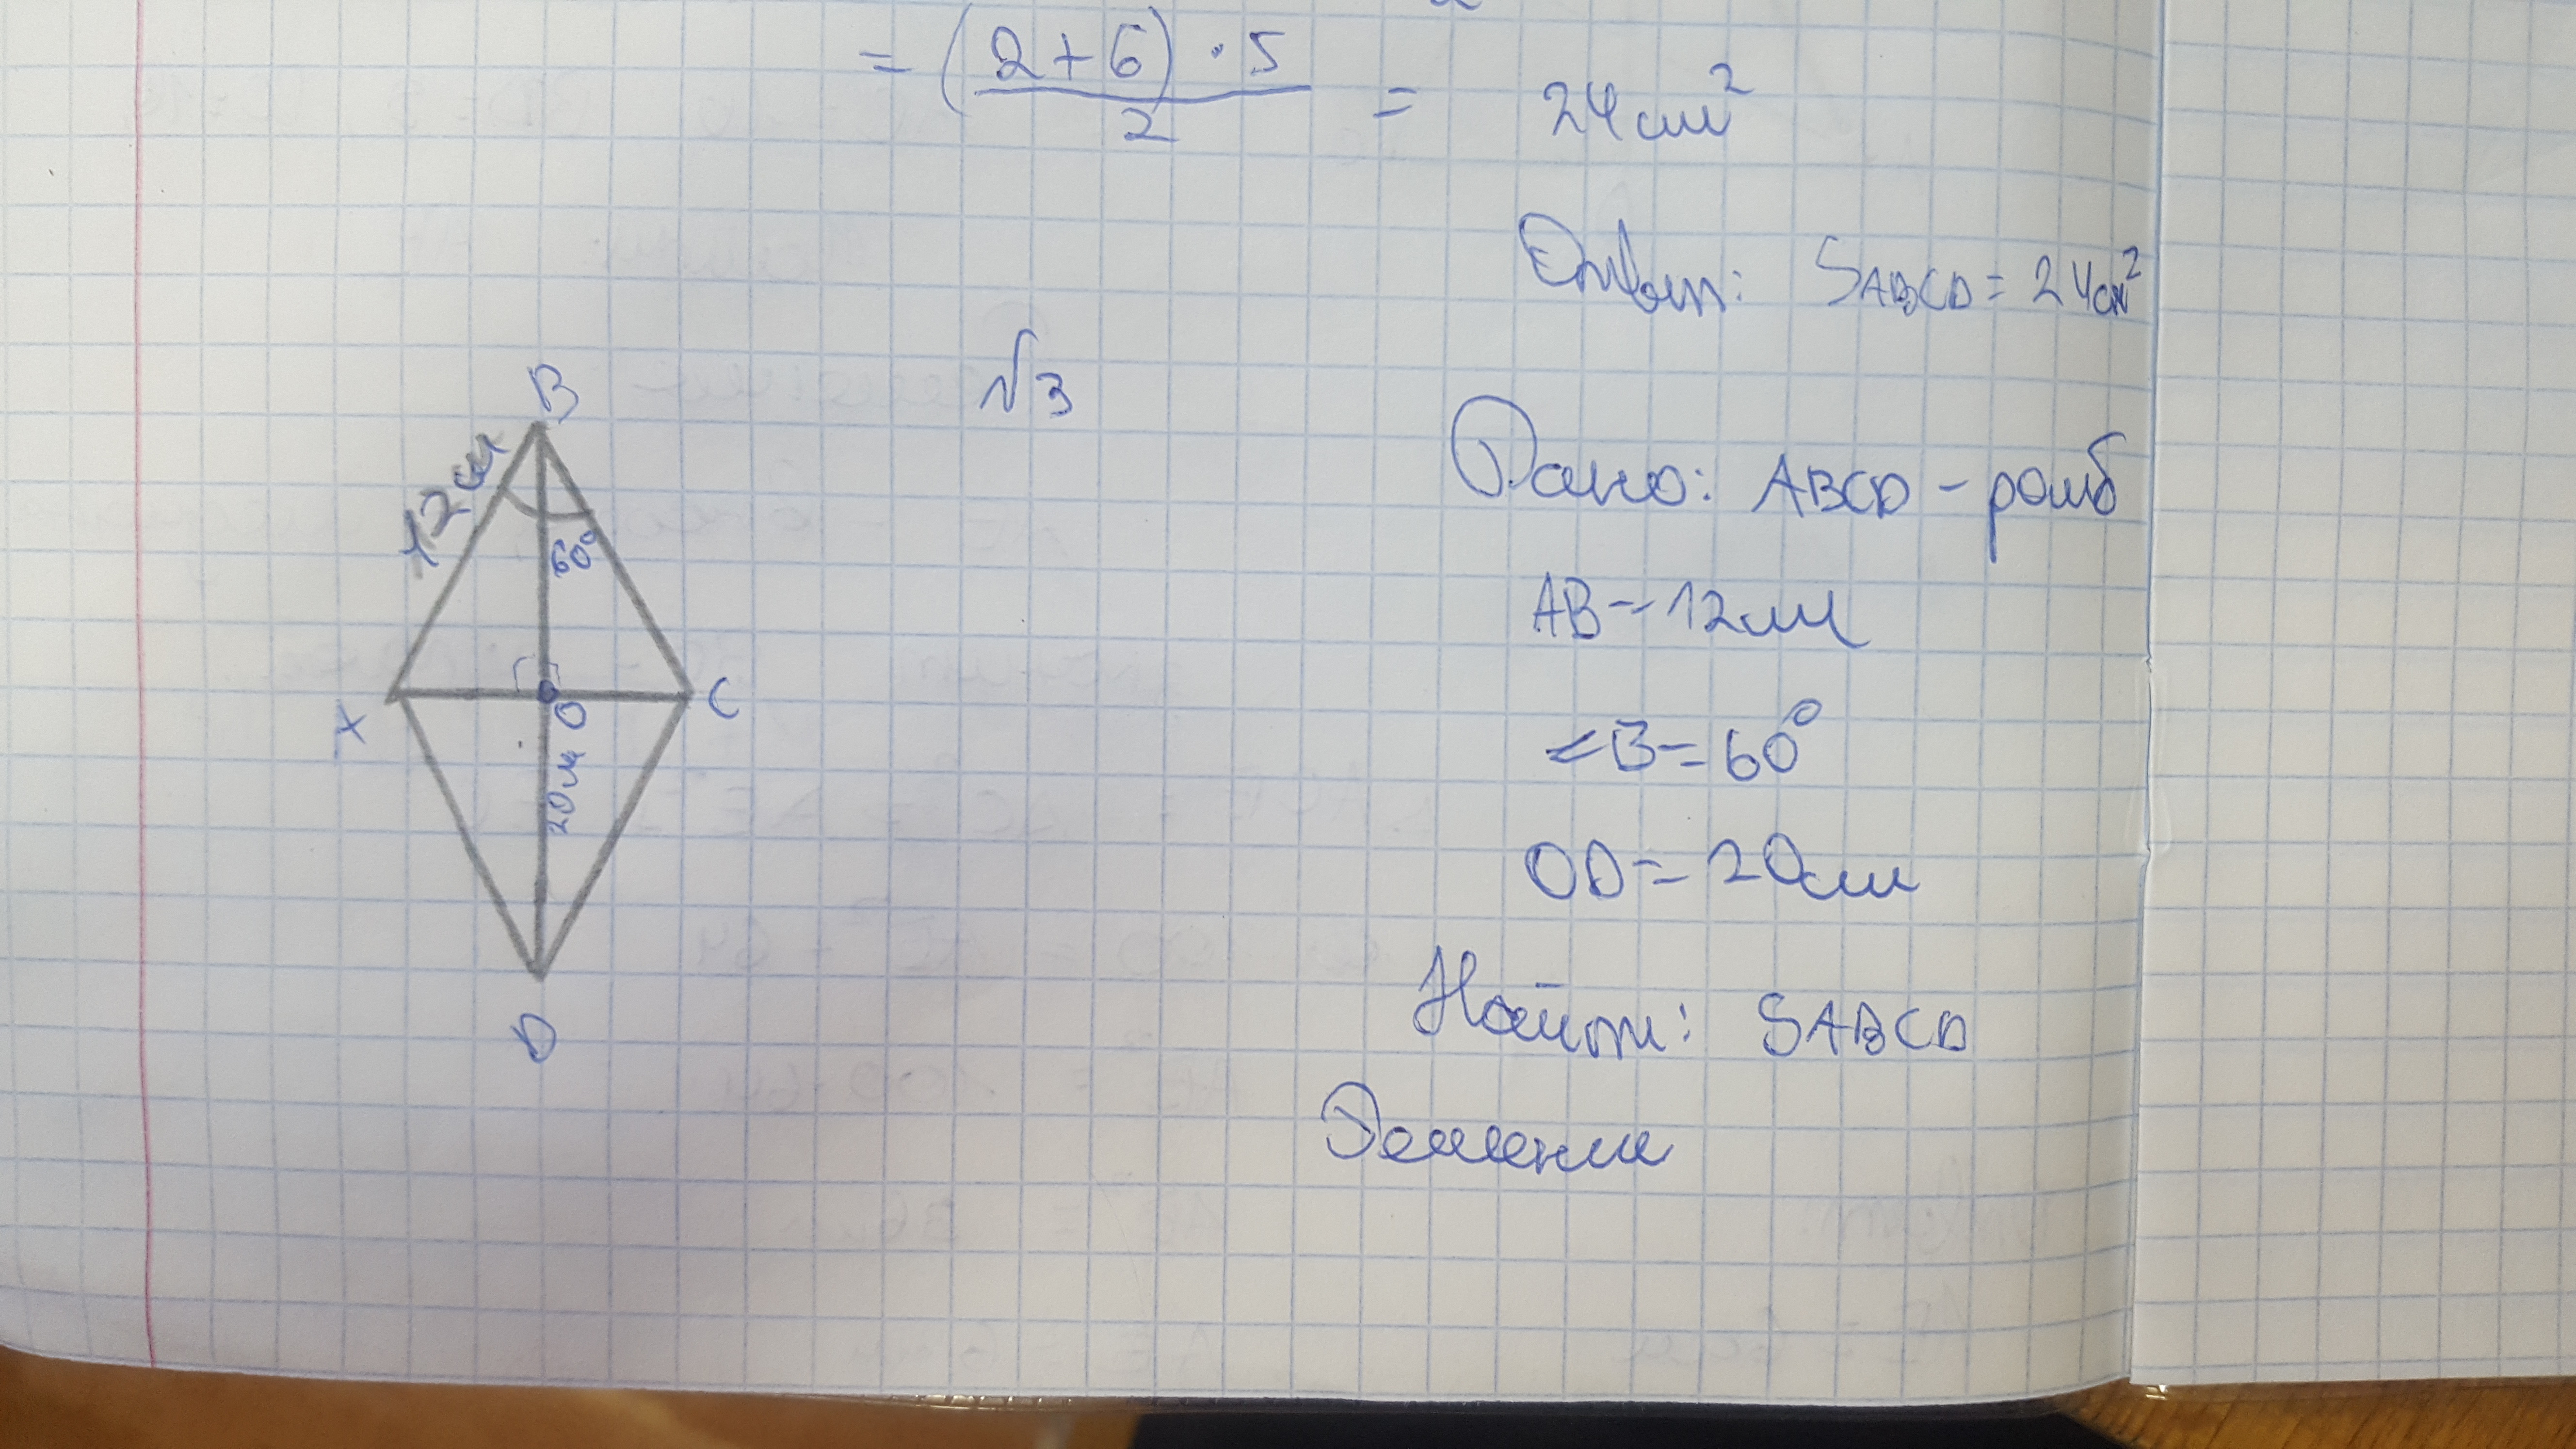 = (2+6) · 5 / 2 = 24 см²
Ответ: SABCD = 24см²
√3
B
12 см
60°
O
C
20м
D
Дано: ABCD - ромб
AB = 12см
∠B = 60°
OD = 20см
Найти: SABCD
Решение